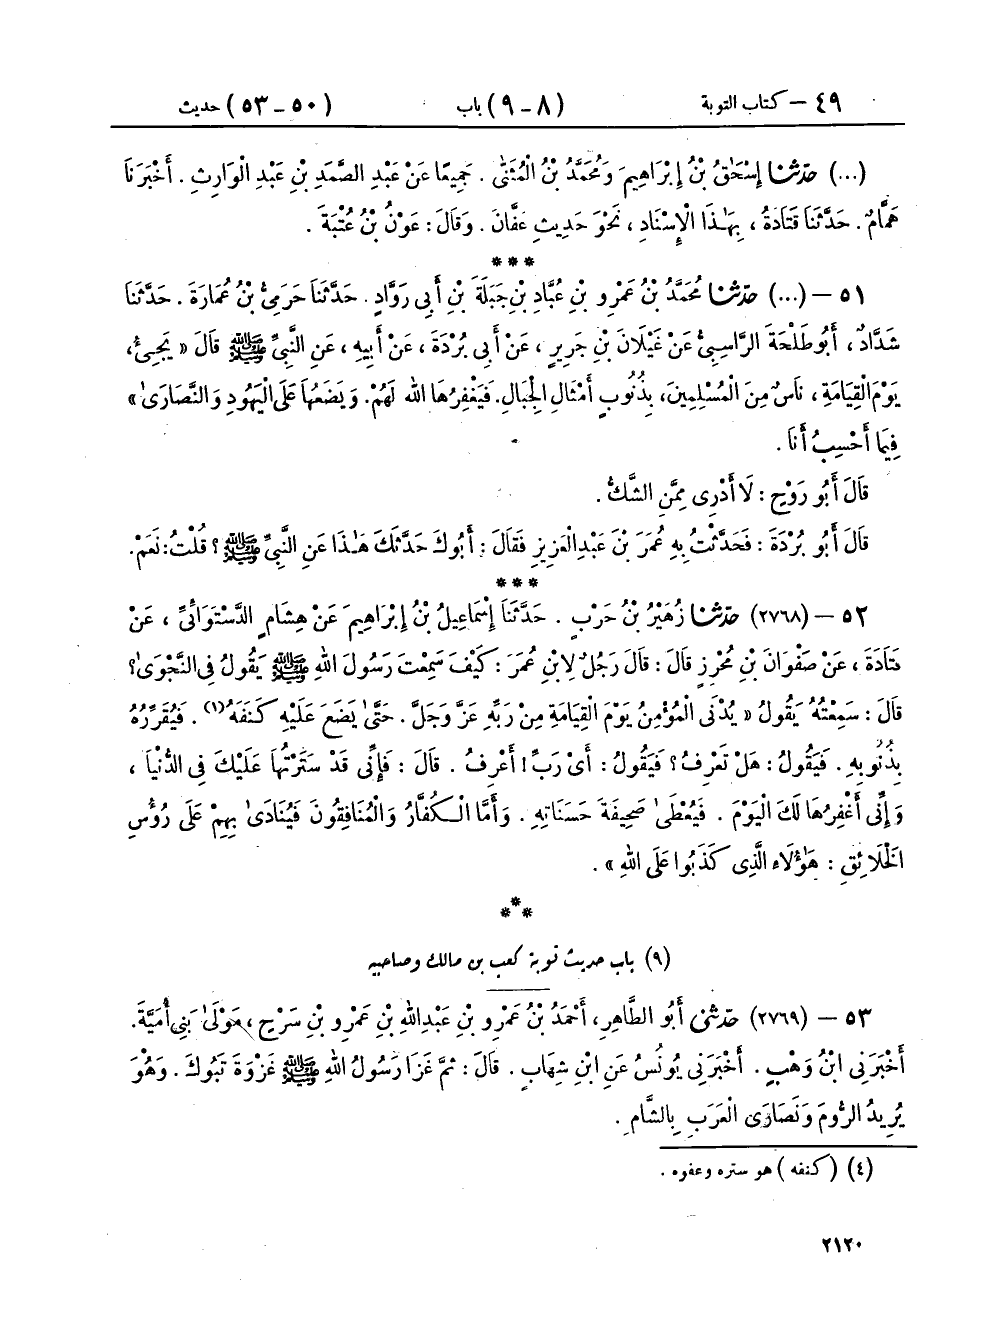 ٤٩ – كتاب التوبة (٨ – ٩) باب (٥٠ – ٥٣) حديث
(...) حَدَّثَنَا إِسْحَٰقُ بْنُ إِبْرَاهِيمَ وَمُحَمَّدُ بْنُ الْمُثَنَّىٰ . جَمِيعًا عَنْ عَبْدِ الصَّمَدِ بْنِ عَبْدِ الْوَارِثِ . أَخْبَرَنَا
هَمَّامٌ . حَدَّثَنَا قَتَادَةُ ، بِهَٰذَا الْإِسْنَادِ ، نَحْوَ حَدِيثِ عَفَّانَ . وَقَالَ : عَوْنُ بْنُ عُتْبَةَ .
***
٥١ – (...) حَدَّثَنَا مُحَمَّدُ بْنُ عَمْرِو بْنِ عُبَّادِ بْنِ جَبَلَةَ بْنِ أَبِى رَوَّادٍ . حَدَّثَنَا حَرَمِىُّ بْنُ عُمَارَةَ . حَدَّثَنَا
شَدَّادٌ ، أَبُو طَلْحَةَ الرَّاسِبِىُّ عَنْ غَيْلَانَ بْنِ جَرِيرٍ ، عَنْ أَبِى بُرْدَةَ ، عَنْ أَبِيهِ ، عَنِ النَّبِىِّ ﷺ قَالَ « يَجِىءُ ،
يَوْمَ الْقِيَامَةِ ، نَاسٌ مِنَ الْمُسْلِمِينَ ، بِذُنُوبٍ أَمْثَالِ الْجِبَالِ . فَيَغْفِرُهَا اللهُ لَهُمْ . وَيَضَعُهَا عَلَى الْيَهُودِ وَالنَّصَارَىٰ »
فِيمَا أَحْسِبُ أَنَا .
قَالَ أَبُو رَوْحٍ : لَا أَدْرِى مِمَّنِ الشَّكُّ .
قَالَ أَبُو بُرْدَةَ : فَحَدَّثْتُ بِهِ عُمَرَ بْنَ عَبْدِ الْعَزِيزِ فَقَالَ : أَبُوكَ حَدَّثَكَ هَٰذَا عَنِ النَّبِىِّ ﷺ ؟ قُلْتُ : نَعَمْ .
***
٥٢ – (٢٧٦٨) حَدَّثَنَا زُهَيْرُ بْنُ حَرْبٍ . حَدَّثَنَا إِسْمَاعِيلُ بْنُ إِبْرَاهِيمَ عَنْ هِشَامٍ الدَّسْتَوَائِىِّ ، عَنْ
قَتَادَةَ ، عَنْ صَفْوَانَ بْنِ مُحْرِزٍ قَالَ : قَالَ رَجُلٌ لِابْنِ عُمَرَ : كَيْفَ سَمِعْتَ رَسُولَ اللهِ ﷺ يَقُولُ فِى النَّجْوَىٰ ؟
قَالَ : سَمِعْتُهُ يَقُولُ « يُدْنَى الْمُؤْمِنُ يَوْمَ الْقِيَامَةِ مِنْ رَبِّهِ عَزَّ وَجَلَّ . حَتَّىٰ يَضَعَ عَلَيْهِ كَنَفَهُ (١) . فَيُقَرِّرُهُ
بِذُنُوبِهِ . فَيَقُولُ : هَلْ تَعْرِفُ ؟ فَيَقُولُ : أَىْ رَبِّ ! أَعْرِفُ . قَالَ : فَإِنِّى قَدْ سَتَرْتُهَا عَلَيْكَ فِى الدُّنْيَا ،
وَإِنِّى أَغْفِرُهَا لَكَ الْيَوْمَ . فَيُعْطَىٰ صَحِيفَةَ حَسَنَاتِهِ . وَأَمَّا الْكُفَّارُ وَالْمُنَافِقُونَ فَيُنَادَىٰ بِهِمْ عَلَى رُؤُسِ
الْخَلَائِقِ : هَٰؤُلَاءِ الَّذِى كَذَبُوا عَلَى اللهِ » .
***
(٩) باب حديث توبة كعب بن مالك وصاحبيه
٥٣ – (٢٧٦٩) حَدَّثَنِى أَبُو الطَّاهِرِ ، أَحْمَدُ بْنُ عَمْرِو بْنِ عَبْدِ اللهِ بْنِ عَمْرِو بْنِ سَرْحٍ ، مَوْلَىٰ بَنِى أُمَيَّةَ .
أَخْبَرَنِى ابْنُ وَهْبٍ . أَخْبَرَنِى يُونُسُ عَنِ ابْنِ شِهَابٍ . قَالَ : ثُمَّ غَزَا رَسُولُ اللهِ ﷺ غَزْوَةَ تَبُوكَ . وَهُوَ
يُرِيدُ الرُّومَ وَنَصَارَى الْعَرَبِ بِالشَّامِ .
(٤) (كنفه) هو ستره وعفوه .
٢١٢٠